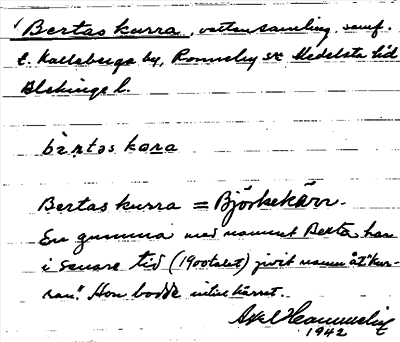 Bertas kurra, vattensamling. samf.
t. Kalleberga by, Ronneby sn Medelsta hd
Blekinge l.
bèrtəs kɷra
Bertas kurra = Björkekärr.
En gumma med namnet Berta har
i senare tid (1900talet) givit namn åt "kur-
ran". Hon bodde intill kärret.
Axel
1942